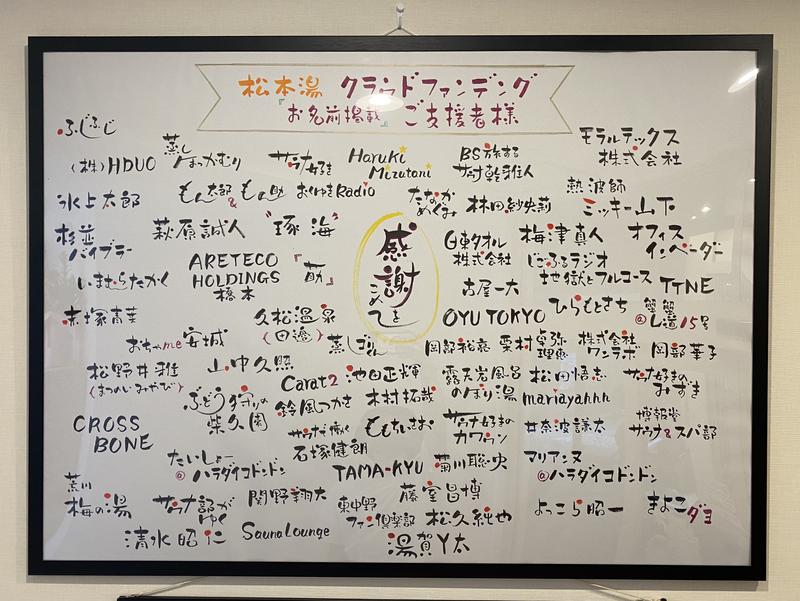 松本湯 クラウドファンディング
『お名前掲載』ご支援者様
ふじふじ
モラルテックス
株式会社
(株)HDUO
蒸し
サウナ好き
Haruki
Mizutani
BS旅する
サウナ
熱波師
ミッキー山下
氷上太郎
もん太郎&もん助
おくゆきRadio
たなか
めぐみ
林田紗央莉
杉並
バイブラー
萩原誠人
"琢海"
感謝
こめて
を
日東タオル
株式会社
梅津真人
オフィス
インベーダー
いまむらたかく
ARETECO
HOLDINGS
橋本
じごふるラジオ
地獄とフルコース
古屋一大
TTNE
赤塚青菜
久松温泉
(田邊)
OYU TOKYO
ひらもとさち
蟹蟹
@し道15号
おちゃme
安城
蒸しごりん
岡部裕亮
栗村卓弥
理恵
株式会社
ワンラボ
岡部華子
松野井雅
(まつのいみやび)
山中久照
Carat2
池田正輝
露天岩風呂
のぼり湯
松田悟志
mariyahhh
サウナ好きの
みずき
ぶどう狩りの
柴久園
鈴風つかさ
木村拓哉
CROSS
BONE
サウナで働く
石塚健朗
ももちいさお
サウナ好きの
カワウソ
井奈波謙太
博報堂
サウナ&スパ部
たいしょー
@ハラダイコドンドン
TAMA-KYU
菊川聡央
マリアンヌ
@ハラダイコドンドン
荒川
梅の湯
サウナ語が
ゆく
関野翔大
東中野
ファン倶楽部
藤室昌博
松久純也
よっこら昭一
きよこダヨ
清水昭仁
Sauna Lounge
湯賀Y太